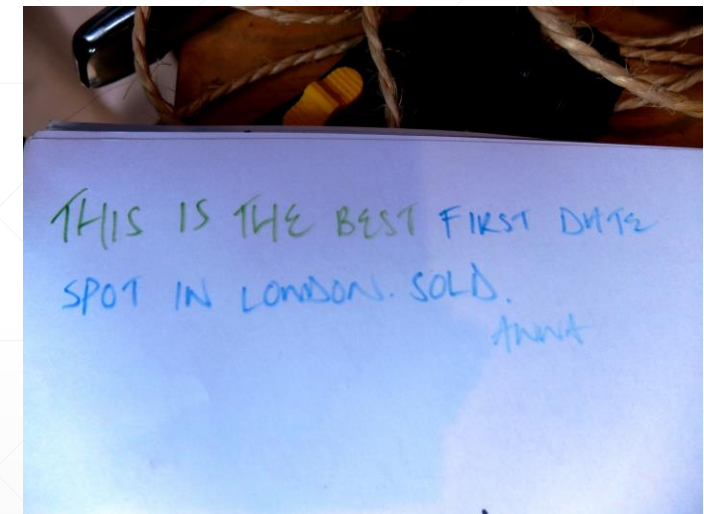 THIS IS THE BEST FIRST DATE
SPOT IN LONDON. SOLD.
ANNA